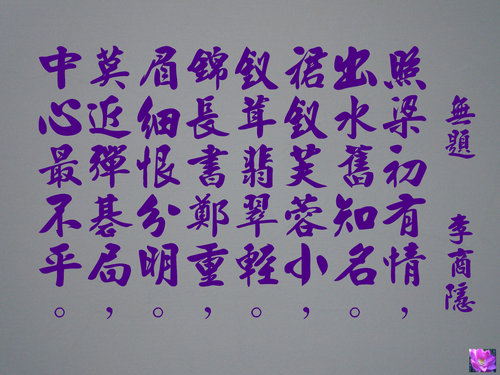 無題 李商隱
照梁初有情,
出水舊知名。
裙釵芙蓉小,
釵茸翡翠輕。
錦長書鄭重,
眉細恨分明。
莫近彈碁局,
中心最不平。